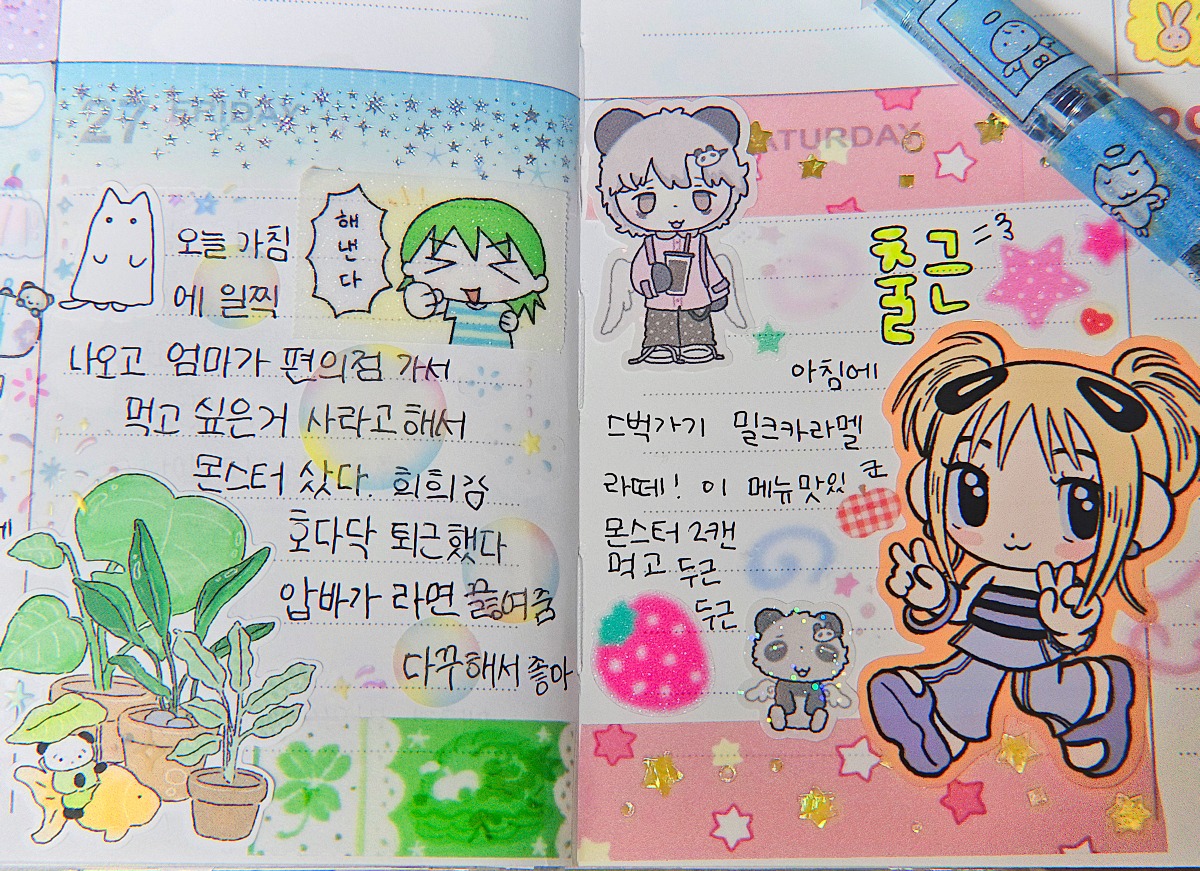 27 FRIDAY
오늘 아침
에 일찍
해
낸
다
나오고 엄마가 편의점 가서
먹고 싶은거 사라고해서
몬스터 샀다. 히히
호다닥 퇴근했다
압바가 라면 끓여줌
다꾸해서 좋아
SATURDAY
출근 =3
아침에
스벅가기 밀크카라멜
라떼! 이 메뉴맛있군
몬스터 2캔
먹고 두근
두근